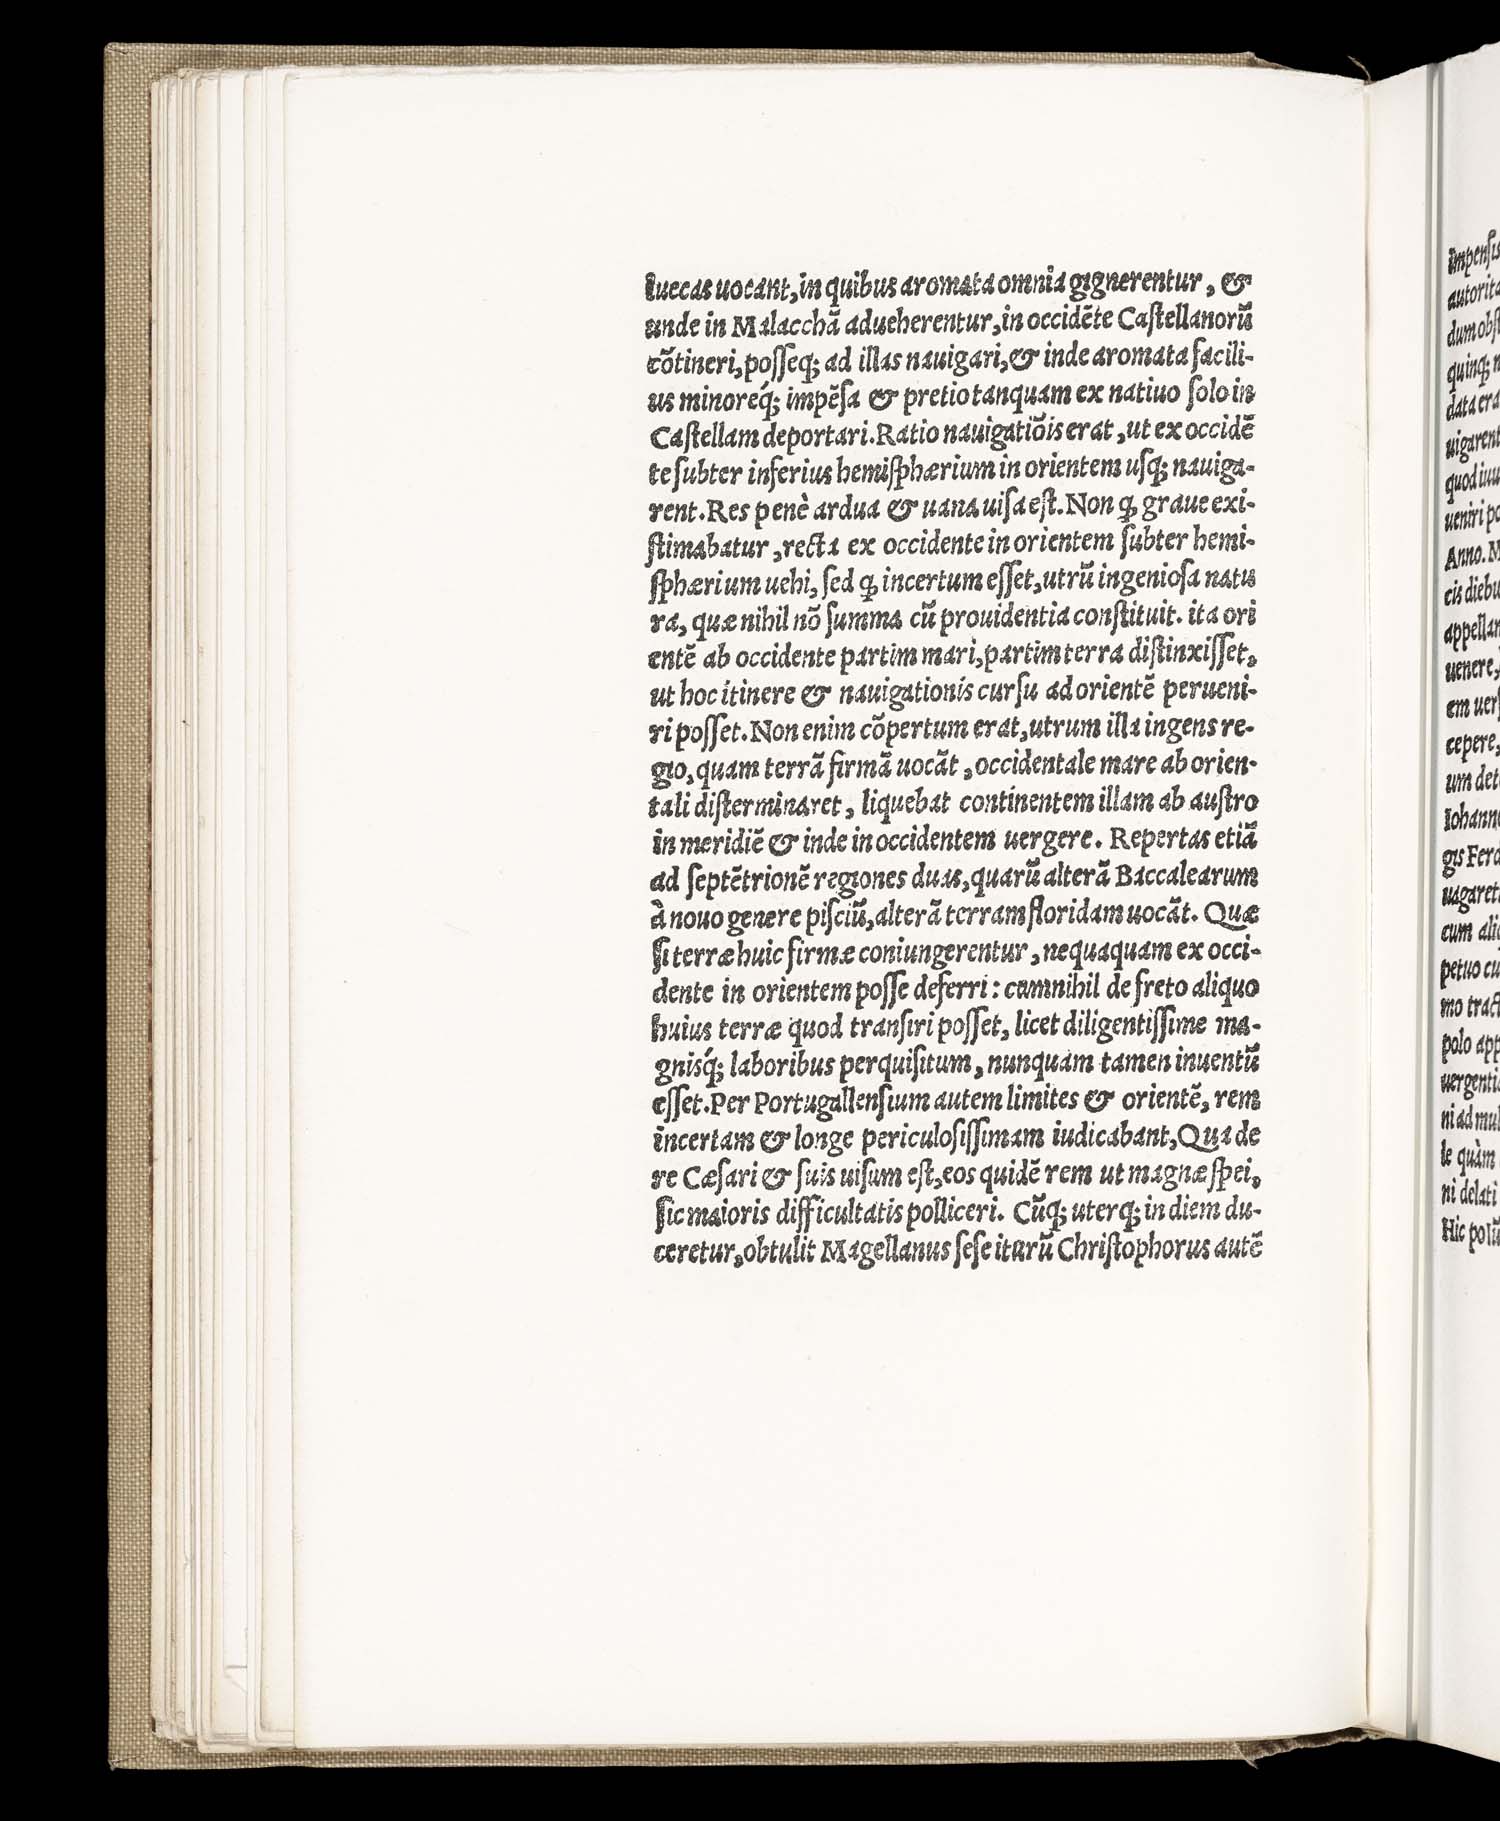 luccas uocant, in quibus aromata omnia gignerentur, &
unde in Malacchā adueherentur, in occidēte Caſtellanorū
cōtineri, poſſeq; ad illas nauigari, & inde aromata facili-
us minoreq́; impēſa & pretio tanquam ex natiuo ſolo in
Caſtellam deportari. Ratio nauigatiōis erat, ut ex occidē
te ſubter inferius hemiſphærium in orientem uſq; nauiga-
rent. Res penè ardua & uana uiſa eſt. Non ꝙ graue exi-
ſtimabatur, recta ex occidente in orientem ſubter hemi-
ſphærium uehi, ſed ꝙ incertum eſſet, utrū ingenioſa natu
ra, quæ nihil nō ſumma cū prouidentia conſtituit. ita ori
entē ab occidente partim mari, partim terra diſtinxiſſet,
ut hoc itinere & nauigationis curſu ad orientē perueni-
ri poſſet. Non enim cōpertum erat, utrum illa ingens re-
gio, quam terrā firmā uocāt, occidentale mare ab orien-
tali diſterminaret, liquebat continentem illam ab auſtro
in meridiē & inde in occidentem uergere. Repertas etiā
ad ſeptētrionē regiones duas, quarū alterā Baccalearum
à nouo genere piſciū, alterā terram floridam uocāt. Quæ
ſi terræ huic firmæ coniungerentur, nequaquam ex occi-
dente in orientem poſſe deferri: cum nihil de freto aliquo
huius terræ quod tranſiri poſſet, licet diligentiſſime ma-
gnisq́; laboribus perquiſitum, nunquam tamen inuentū
eſſet. Per Portugallenſium autem limites & orientē, rem
incertam & longe periculoſiſſimam iudicabant, Qua de
re Cæſari & ſuis uiſum eſt, eos quidē rem ut magnæ ſpei,
ſic maioris difficultatis polliceri. Cūq; uterq; in diem du-
ceretur, obtulit Magellanus ſeſe iturū Chriſtophorus autē
impenſis
autorita
dum obſt
quinq; n
data era
uigarent
quod iuu
ueniri po
Anno. M
cis diebu
appellan
uenere,
em uerſ
cepere,
um det
Iohanne
gis Ferd
uagaret
cum aliq
petuo cu
mo tract
polo app
uergenti
ni ad mul
le quàm
ni delati
Hic polū